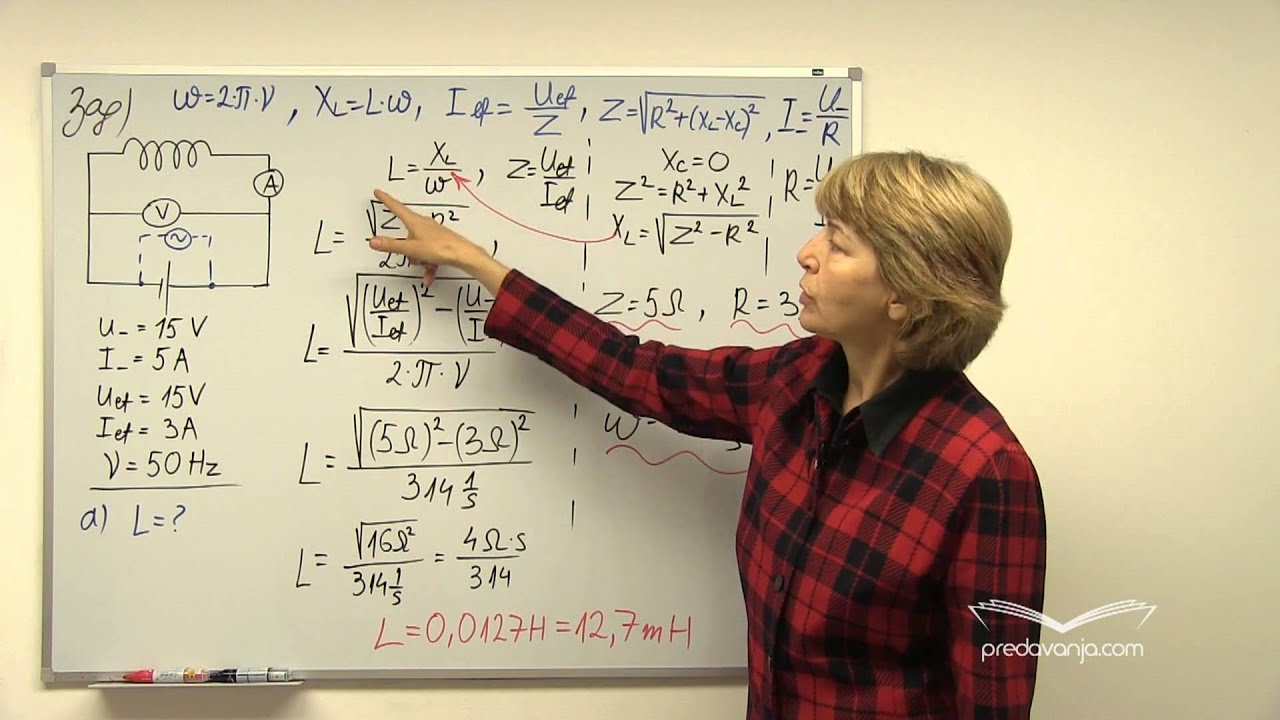 Зад)
ω=2·π·ν, X_L=L·ω, I_ef=U_ef/Z, Z=√(R²+(X_L-X_C)²), I_=U_/R
A
V
~
U_ = 15 V
I_ = 5 A
U_ef = 15 V
I_ef = 3 A
ν = 50 Hz
a) L = ?
L = X_L/ω, Z = U_ef/I_ef
L = √(Z R²)/2
L = √((U_ef/I_ef)² - (U_/I
2·π·ν
L = √((5Ω)²-(3Ω)²)/(314 1/s)
L = √(16Ω²)/(314 1/s) = 4Ω·s/314
L = 0,0127H = 12,7mH
X_C = 0
Z² = R² + X_L²
X_L = √(Z² - R²)
R =
Z = 5Ω, R = 3
ω =
predavanja.com